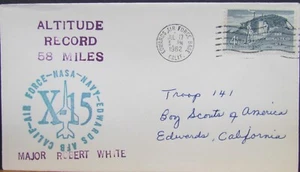 ALTITUDE
RECORD
58 MILES
EDWARDS AIR FORCE BASE
1962
CALIF.
AIR FORCE-NASA-NAVY-EDWARDS AFB CALIF-
X-15
MAJOR ROBERT WHITE
Troop 141
Boy Scouts of America
Edwards, California